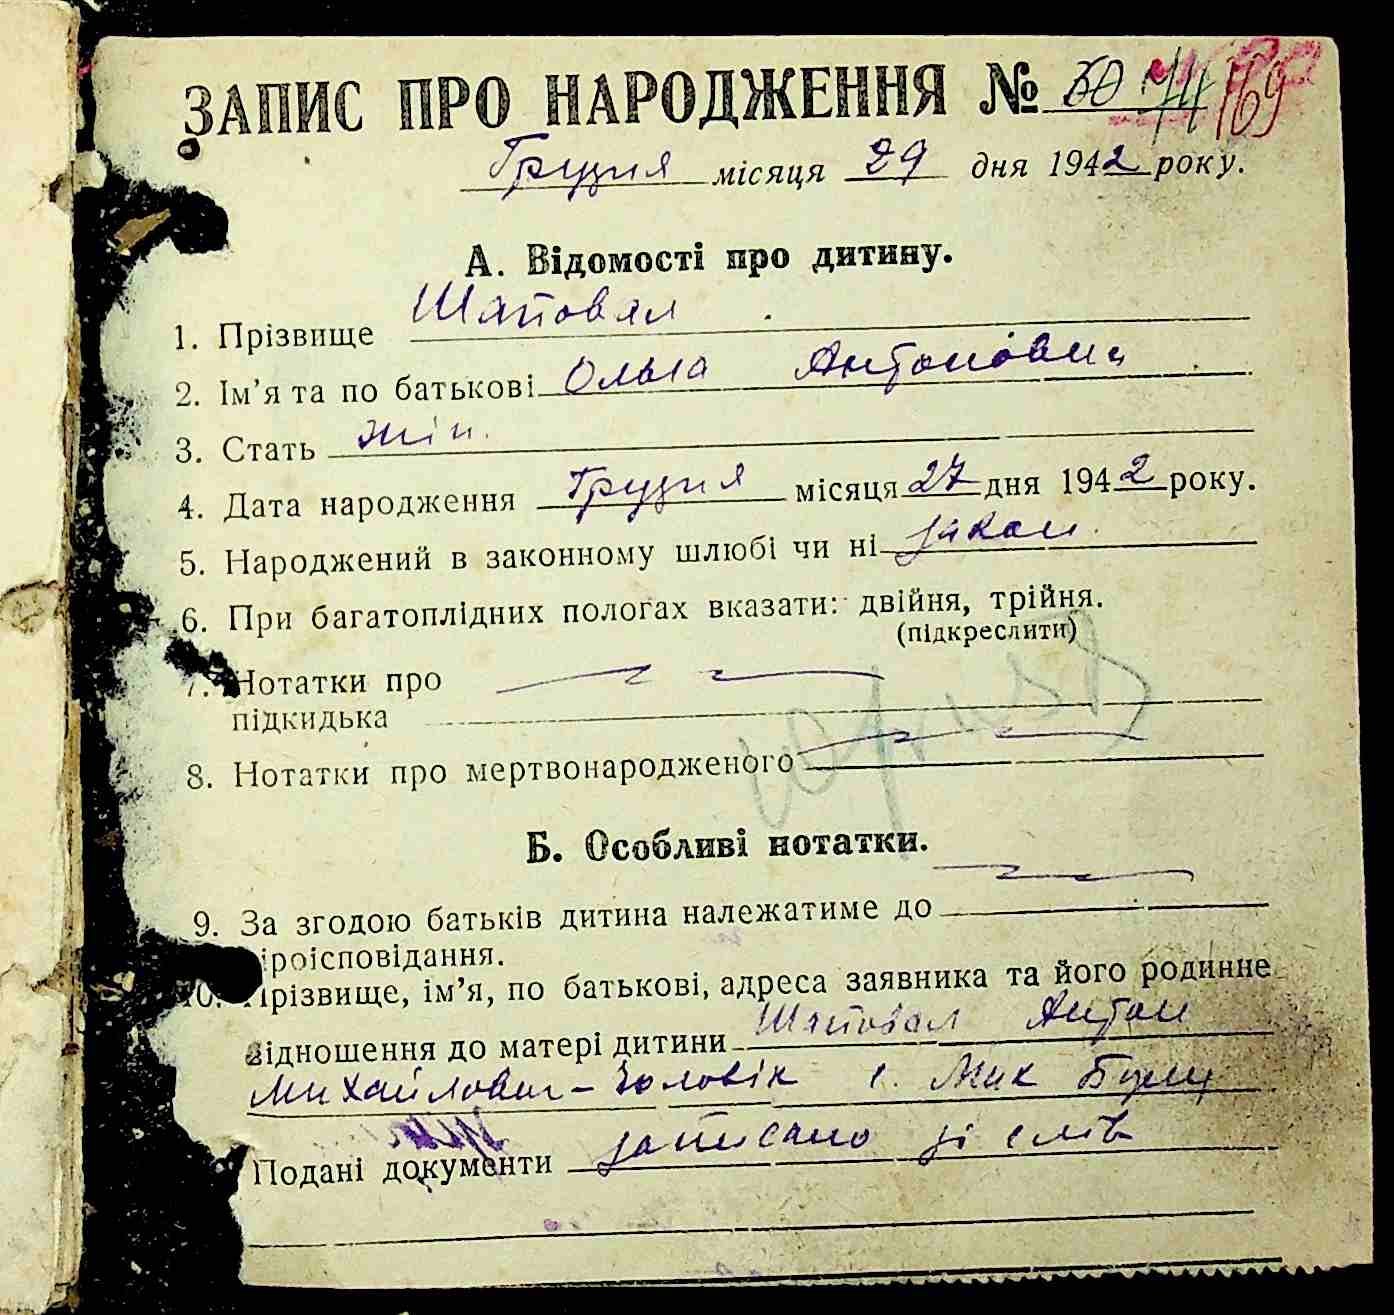 ЗАПИС ПРО НАРОДЖЕННЯ № 60 74 169
Грудня місяця 29 дня 1942 року.
А. Відомості про дитину.
1. Прізвище Шаповал
2. Ім’я та по батькові Ольга Антоновна
3. Стать жін.
4. Дата народження Грудня місяця 27 дня 1942 року.
5. Народжений в законному шлюбі чи ні закон.
6. При багатоплідних пологах вказати: двійня, трійня.
(підкреслити)
7. Нотатки про
підкидька
8. Нотатки про мертвонародженого
Б. Особливі нотатки.
9. За згодою батьків дитина належатиме до
віроісповідання.
10. Прізвище, ім’я, по батькові, адреса заявника та його родинне
відношення до матері дитини Шаповал Антон
Михайлович - Чоловік с.
Подані документи записано зі слів